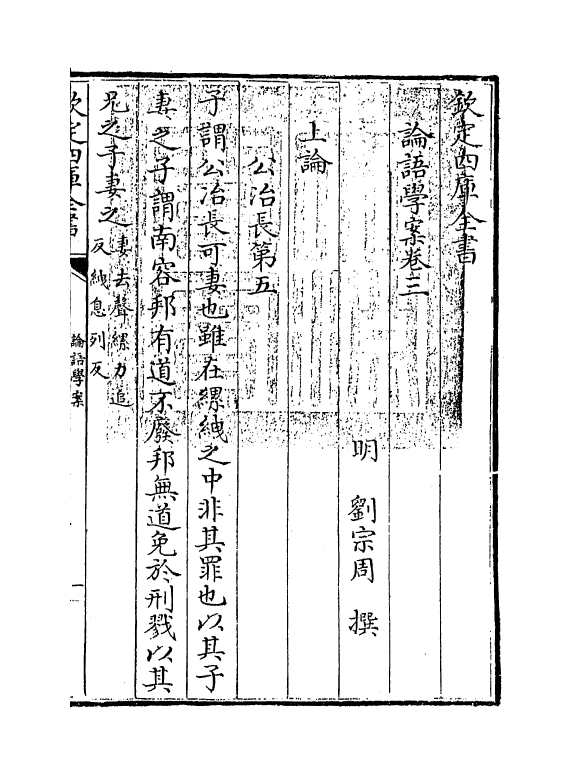 欽定四庫全書
論語學案卷三
明 劉宗周 撰
上論
公冶長第五
子謂公冶長可妻也雖在縲絏之中非其罪也以其子
妻之子謂南容邦有道不廢邦無道免於刑戮以其
兄之子妻之
妻去聲縲力追
反絏息列反
欽定四庫全書
論語學案
一